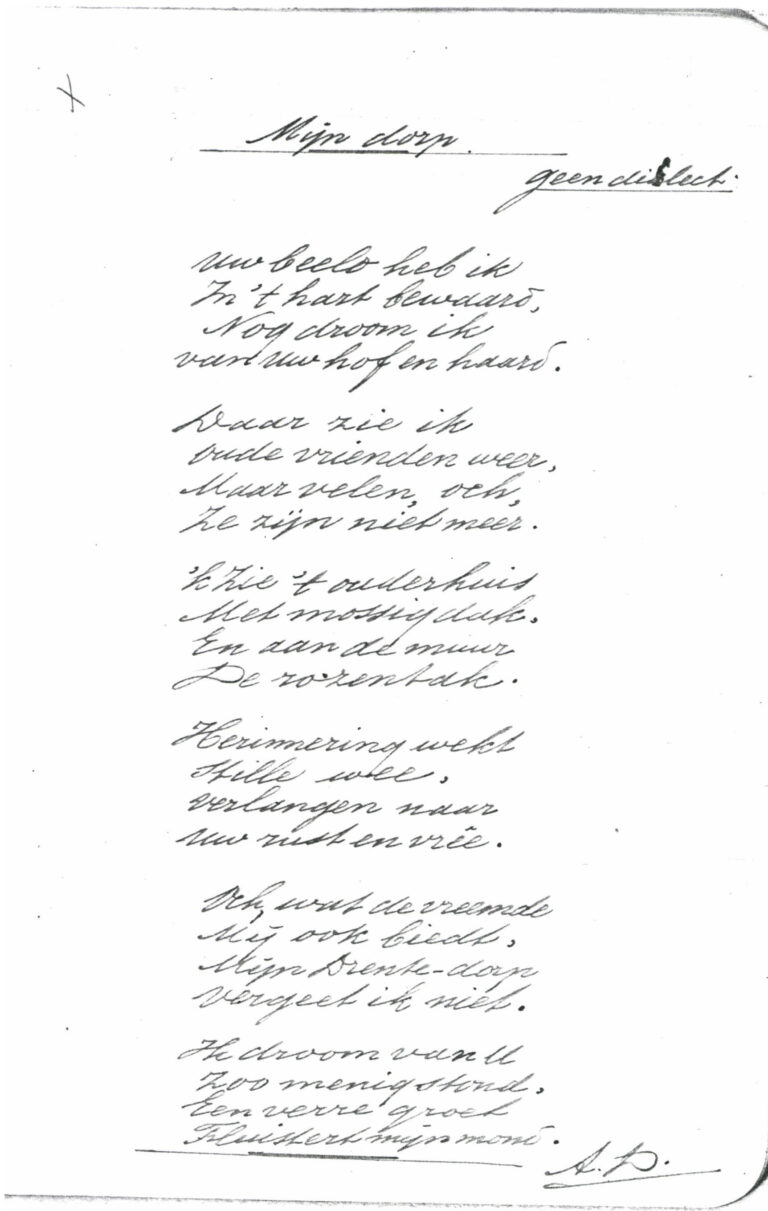 Mijn dorp.
geen dialect.
Uw beeld heb ik
In 't hart bewaard,
Nog droom ik
van uw hof en haard.
Daar zie ik
oude vrienden weer,
Maar velen, och,
Ze zijn niet meer.
'k Zie 't ouderhuis
Met mossig dak,
En aan de muur
De rozentak.
Herinnering wekt
stille wee,
verlangen naar
Uw rust en vrêe.
Och, wat de vreemde
Mij ook biedt,
Mijn Drente-dorp
vergeet ik niet.
Ik droom van U
Zoo menig stond,
Een verre groet
Fluistert mijn mond.
A. D.